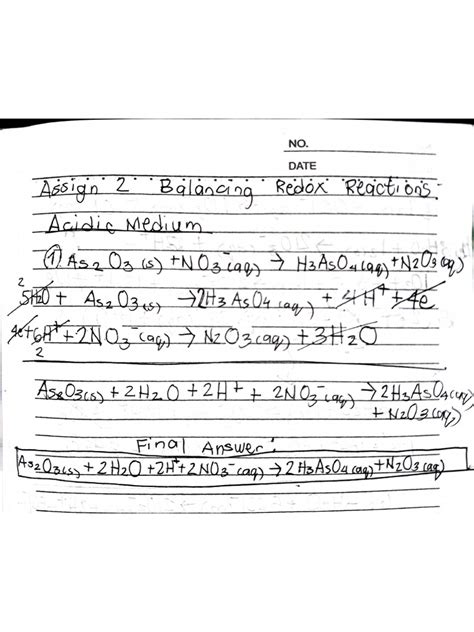 NO.
DATE
Assign 2 Balancing Redox Reactions
Acidic Medium
① As2O3(s) + NO3⁻(aq) → H3AsO4(aq) + N2O3(aq)
2
5H2O + As2O3(s) → 2H3AsO4(aq) + 4H⁺ + 4e
4e + 6H⁺ + 2NO3⁻(aq) → N2O3(aq) + 3H2O
2
As2O3(s) + 2H2O + 2H⁺ + 2NO3⁻(aq) → 2H3AsO4(aq)
+ N2O3(aq)
Final Answer:
As2O3(s) + 2H2O + 2H⁺ + 2NO3⁻(aq) → 2H3AsO4(aq) + N2O3(aq)